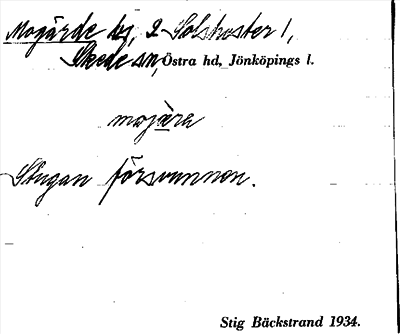 Mogärde bf, 2 Solshester 1,
Skede sn, Östra hd, Jönköpings l.
mojæra
Stugan försvunnen.
Stig Bäckstrand 1934.